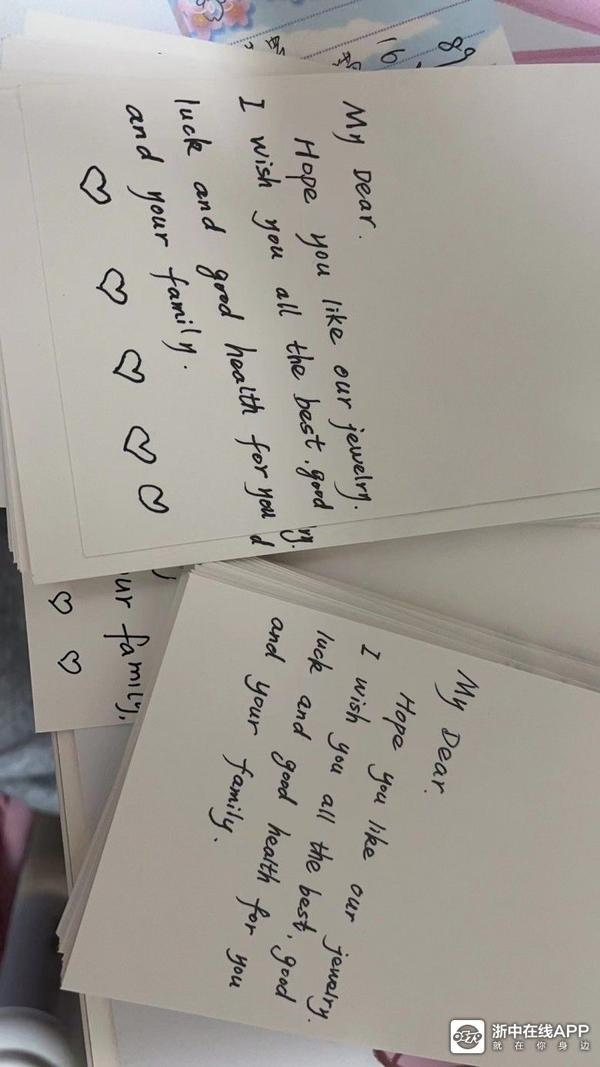 89
16
My Dear.
Hope you like our jewelry.
I wish you all the best, good
luck and good health for you
and your family.
ry.
d
ur family.
My Dear.
Hope you like our jewelry.
I wish you all the best, good
luck and good health for you
and your family.
浙中在线APP
就在你身边